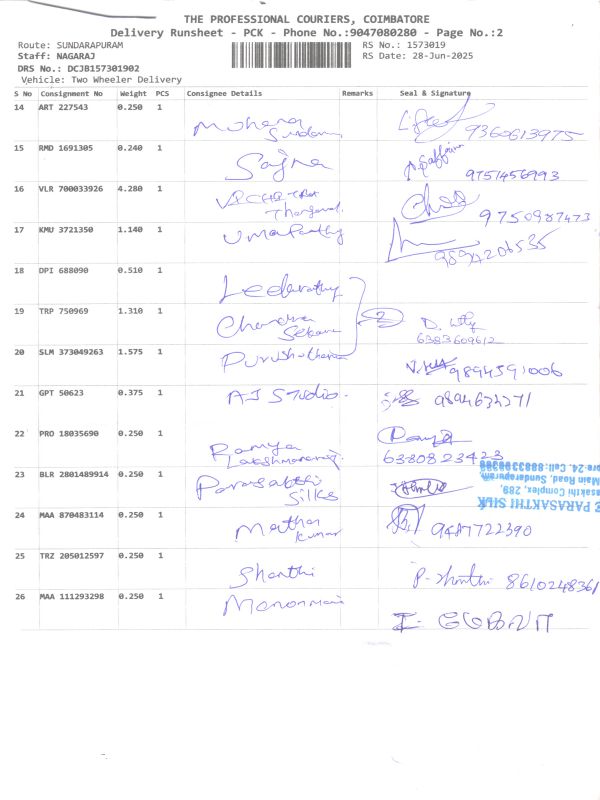 THE PROFESSIONAL COURIERS, COIMBATORE
Delivery Runsheet - PCK - Phone No.:9047080280 - Page No.:2
Route: SUNDARAPURAM RS No.: 1573019
Staff: NAGARAJ RS Date: 28-Jun-2025
DRS No.: DCJB157301902
Vehicle: Two Wheeler Delivery
S No Consignment No Weight PCS Consignee Details Remarks Seal & Signature
14 ART 227543 0.250 1 Mohana
Sundaram 9360613975
15 RMD 1691305 0.240 1 Sajna
9751456993
16 VLR 700033926 4.280 1
9750987473
17 KMU 3721350 1.140 1 Umapathy
9894206535
18 DPI 688090 0.510 1
19 TRP 750969 1.310 1 Chandra
Sekaran
6383609612
20 SLM 373049263 1.575 1 9894591006
21 GPT 50623 0.375 1 AJ Studio. 9894634271
22 PRO 18035690 0.250 1 Ramya
Lakshmanaraj 6380823423
23 BLR 2801489914 0.250 1 Parasakthi
Silks
E PARASAKTHI SILK
asakthi Complex, 289,
Main Road, Sundarapuram,
ore-24. Cell:
24 MAA 870483114 0.250 1 Mathan
Kumar 9487722390
25 TRZ 205012597 0.250 1 Shanthi P. Shanthi 8610248361
26 MAA 111293298 0.250 1 Manonmani